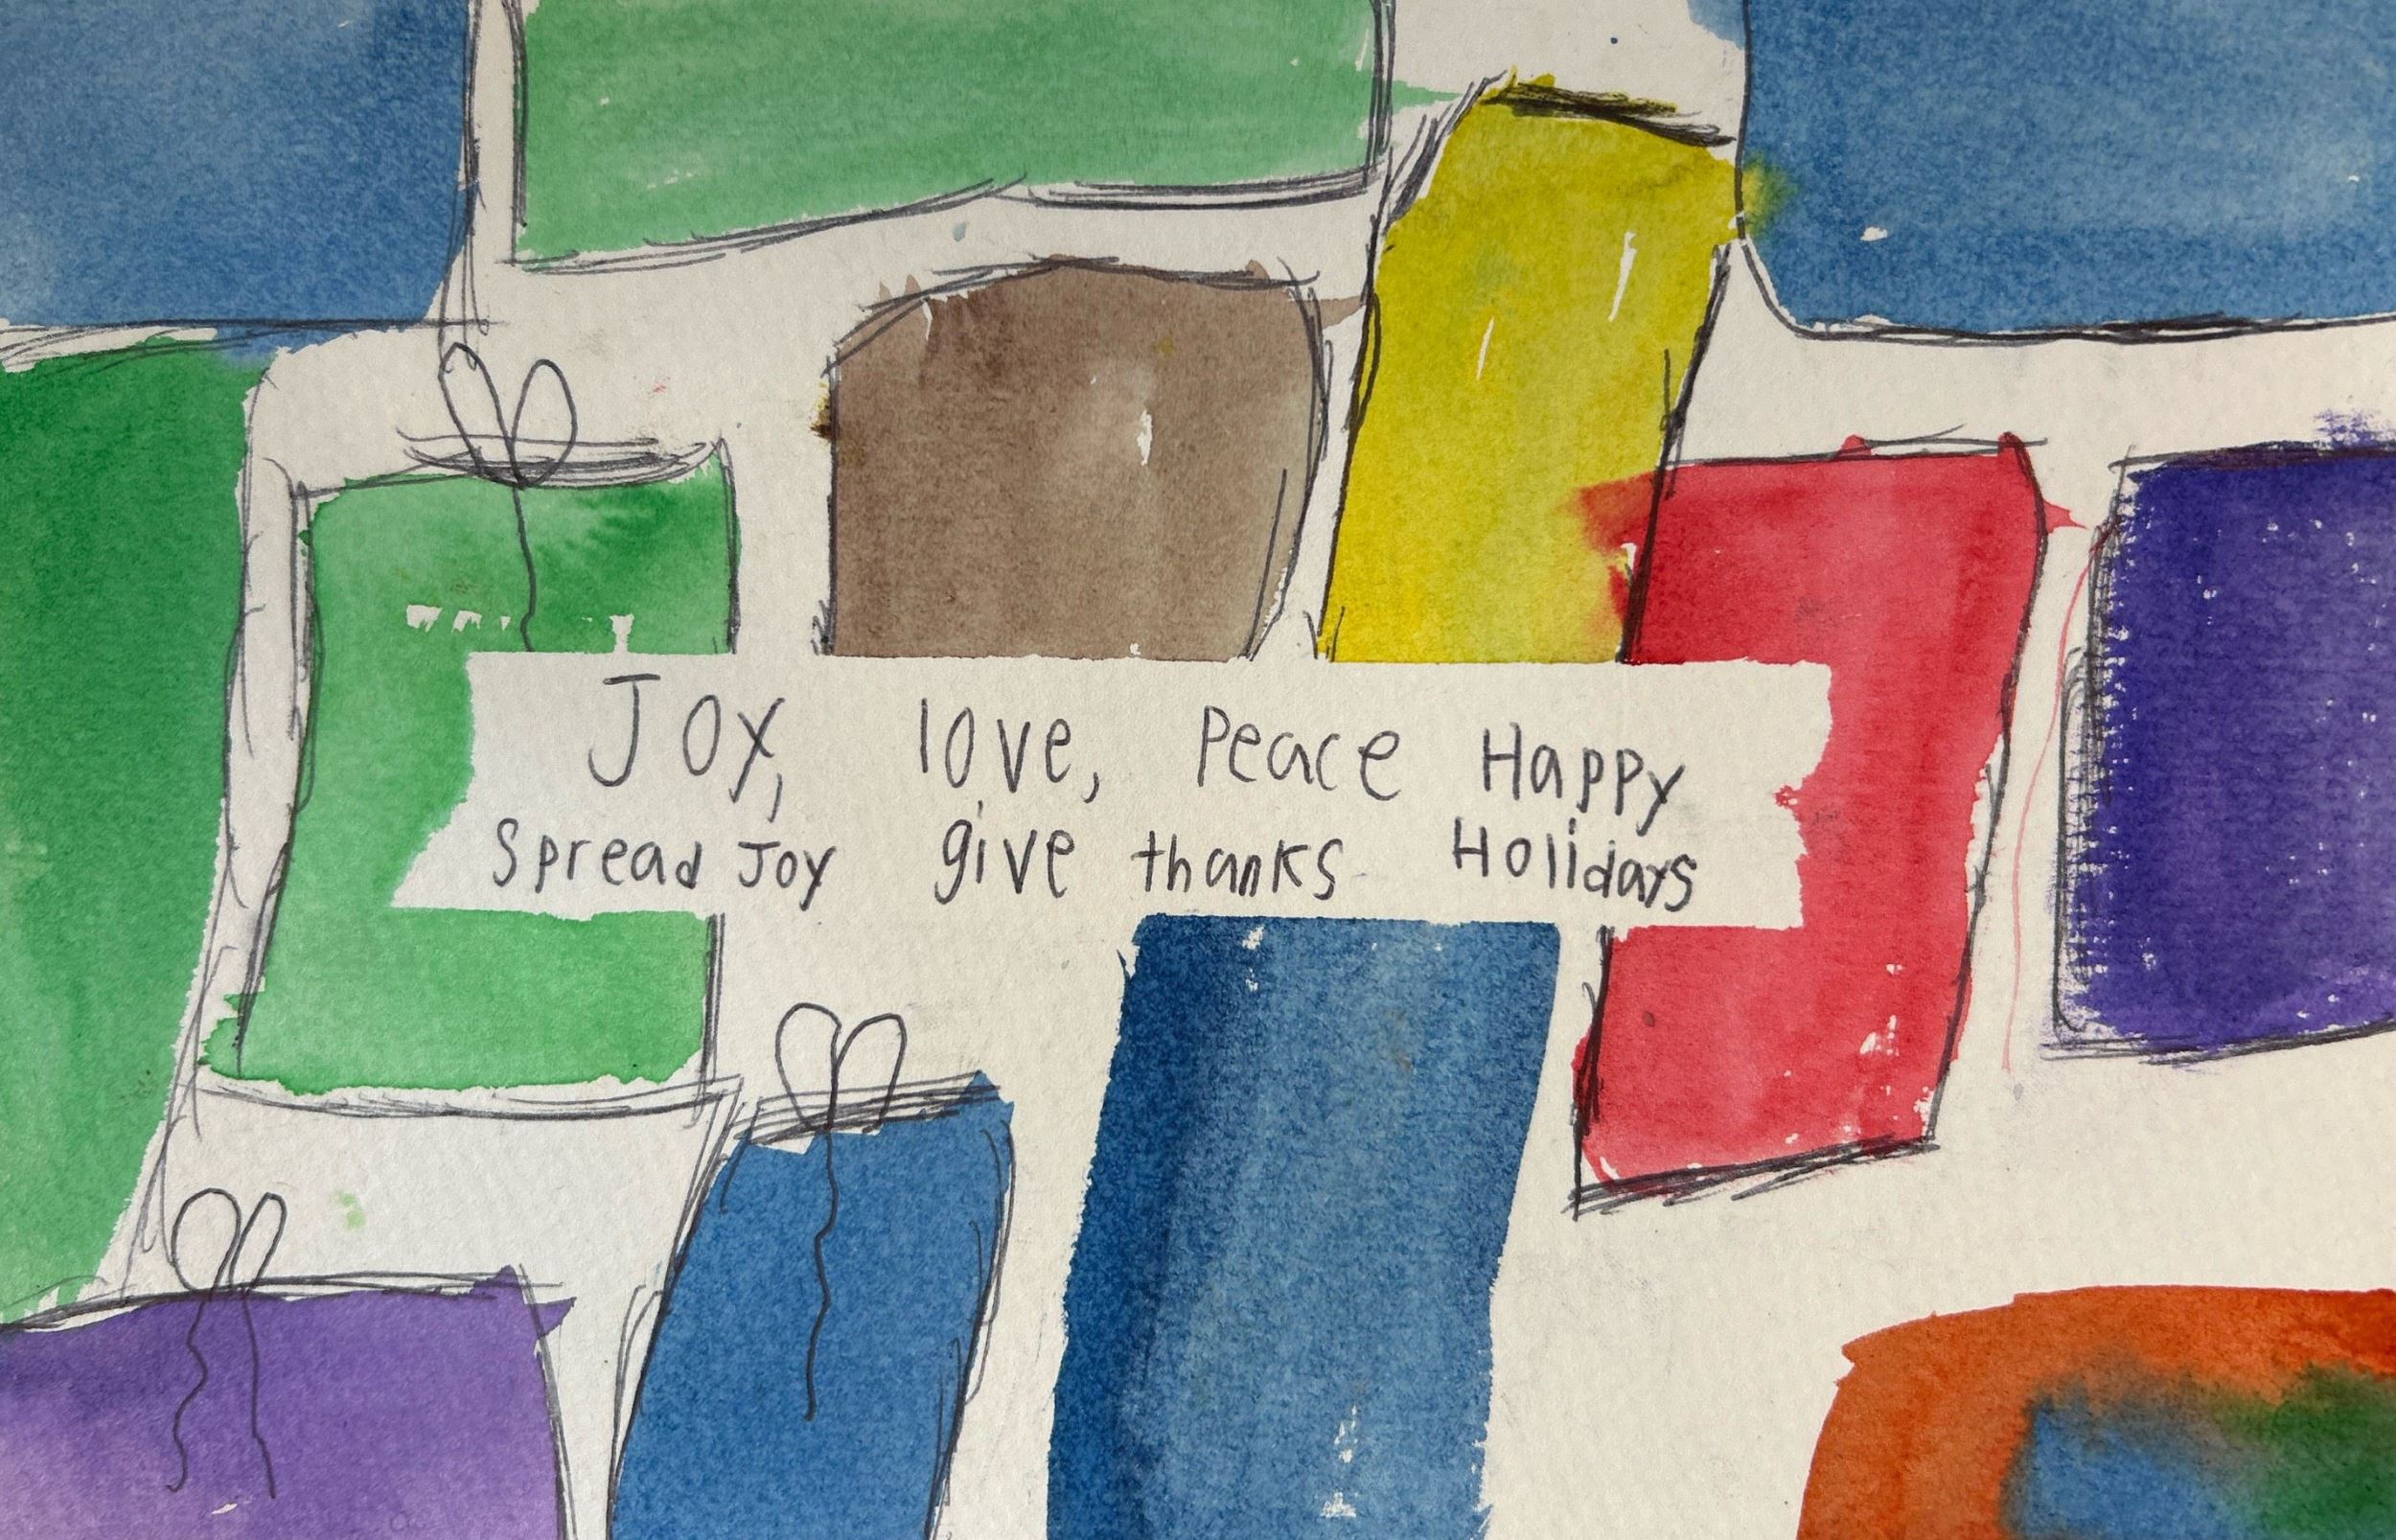 Joy, love, Peace Happy
Spread Joy give thanks Holidays